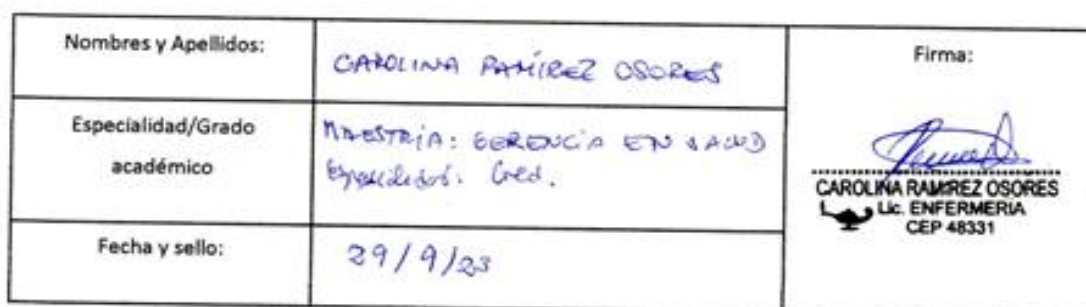 Nombres y Apellidos:
CAROLINA RAMÍREZ OSORES
Firma:
Especialidad/Grado
académico
MAESTRÍA: GERENCIA EN SALUD
Especialidad: Cred.
CAROLINA RAMIREZ OSORES
Lic. ENFERMERIA
CEP 48331
Fecha y sello:
29/9/23